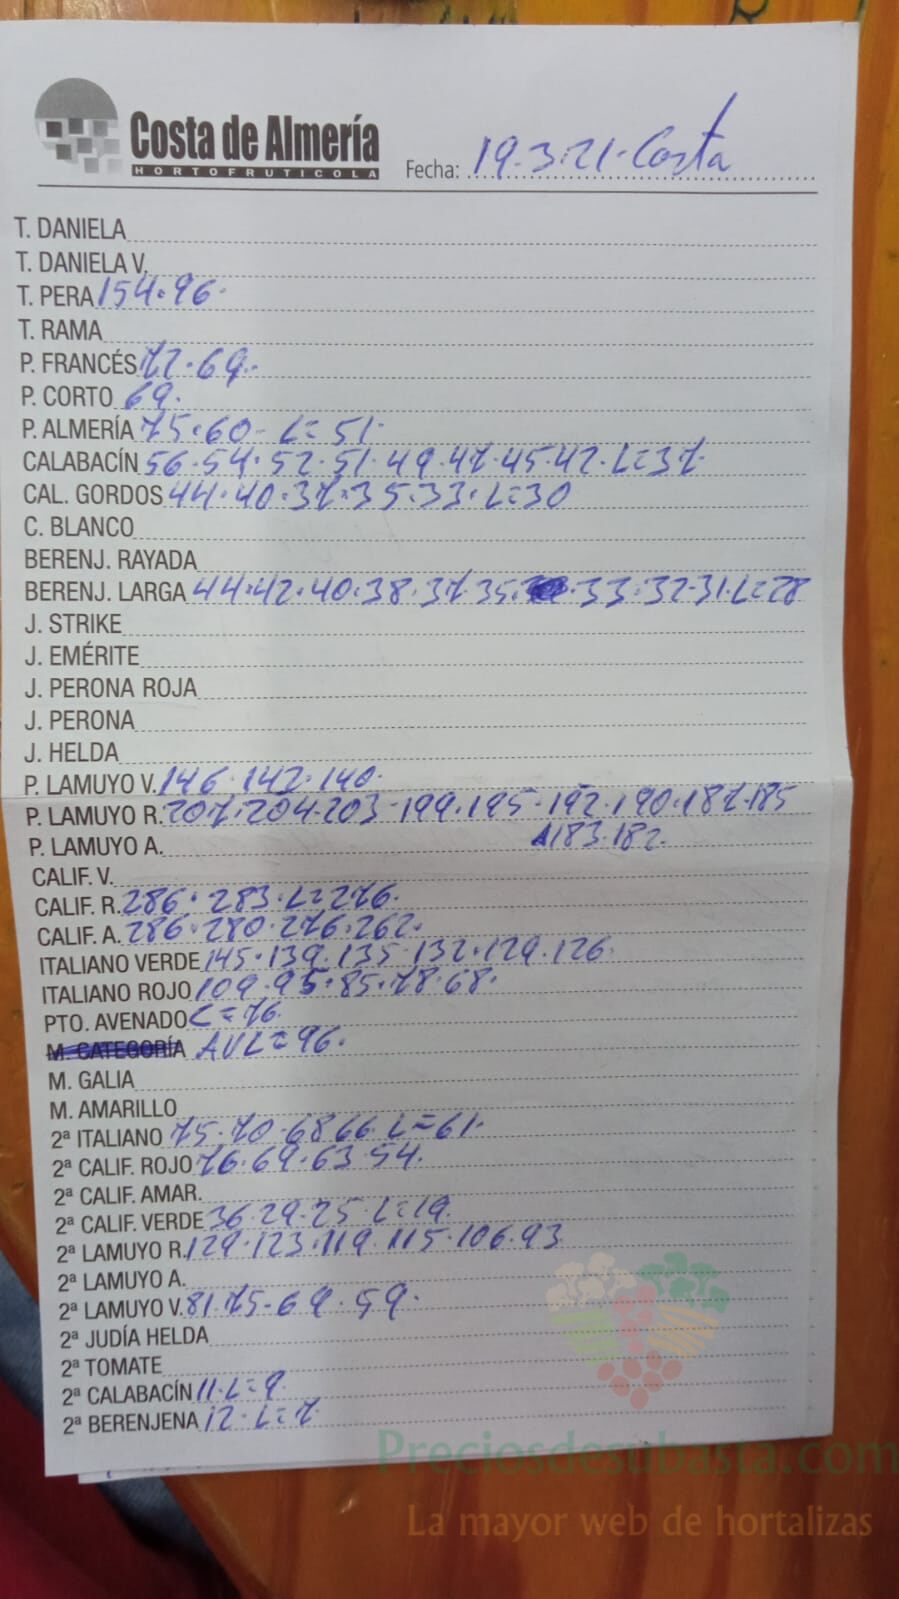 Costa de Almería
HORTOFRUTICOLA
Fecha: 19.3.21. Costa
T. DANIELA
T. DANIELA V.
T. PERA 154.96.
T. RAMA
P. FRANCÉS 72.69.
P. CORTO 69.
P. ALMERÍA 75.60- L=51.
CALABACÍN 56.54.52.51.49.47.45.42.L=37.
CAL. GORDOS 44.40.37.35.33.L=30
C. BLANCO
BERENJ. RAYADA
BERENJ. LARGA 44.42.40.38.37.35. .33.32.31.L=28
J. STRIKE
J. EMÉRITE
J. PERONA ROJA
J. PERONA
J. HELDA
P. LAMUYO V. 146.142.140.
P. LAMUYO R. 207.204.203-199.195-192.190.187.185
P. LAMUYO A. 183.182.
CALIF. V.
CALIF. R. 286.283.L=276.
CALIF. A. 286.280.276.262.
ITALIANO VERDE 145.139.135-132.129.126
ITALIANO ROJO 109.95.85.78.68.
PTO. AVENADO C=76.
M. CATEGORÍA AVL=96.
M. GALIA
M. AMARILLO
2ª ITALIANO 75.70.68 66 L=61.
2ª CALIF. ROJO 76.69.63 54.
2ª CALIF. AMAR.
2ª CALIF. VERDE 36.29.25 L=19.
2ª LAMUYO R. 129.123.119.115.106.93
2ª LAMUYO A.
2ª LAMUYO V. 81.75-69.59.
2ª JUDÍA HELDA
2ª TOMATE
2ª CALABACÍN 11.L=9.
2ª BERENJENA 12.L=7
Preciosdesubasta.com
La mayor web de hortalizas